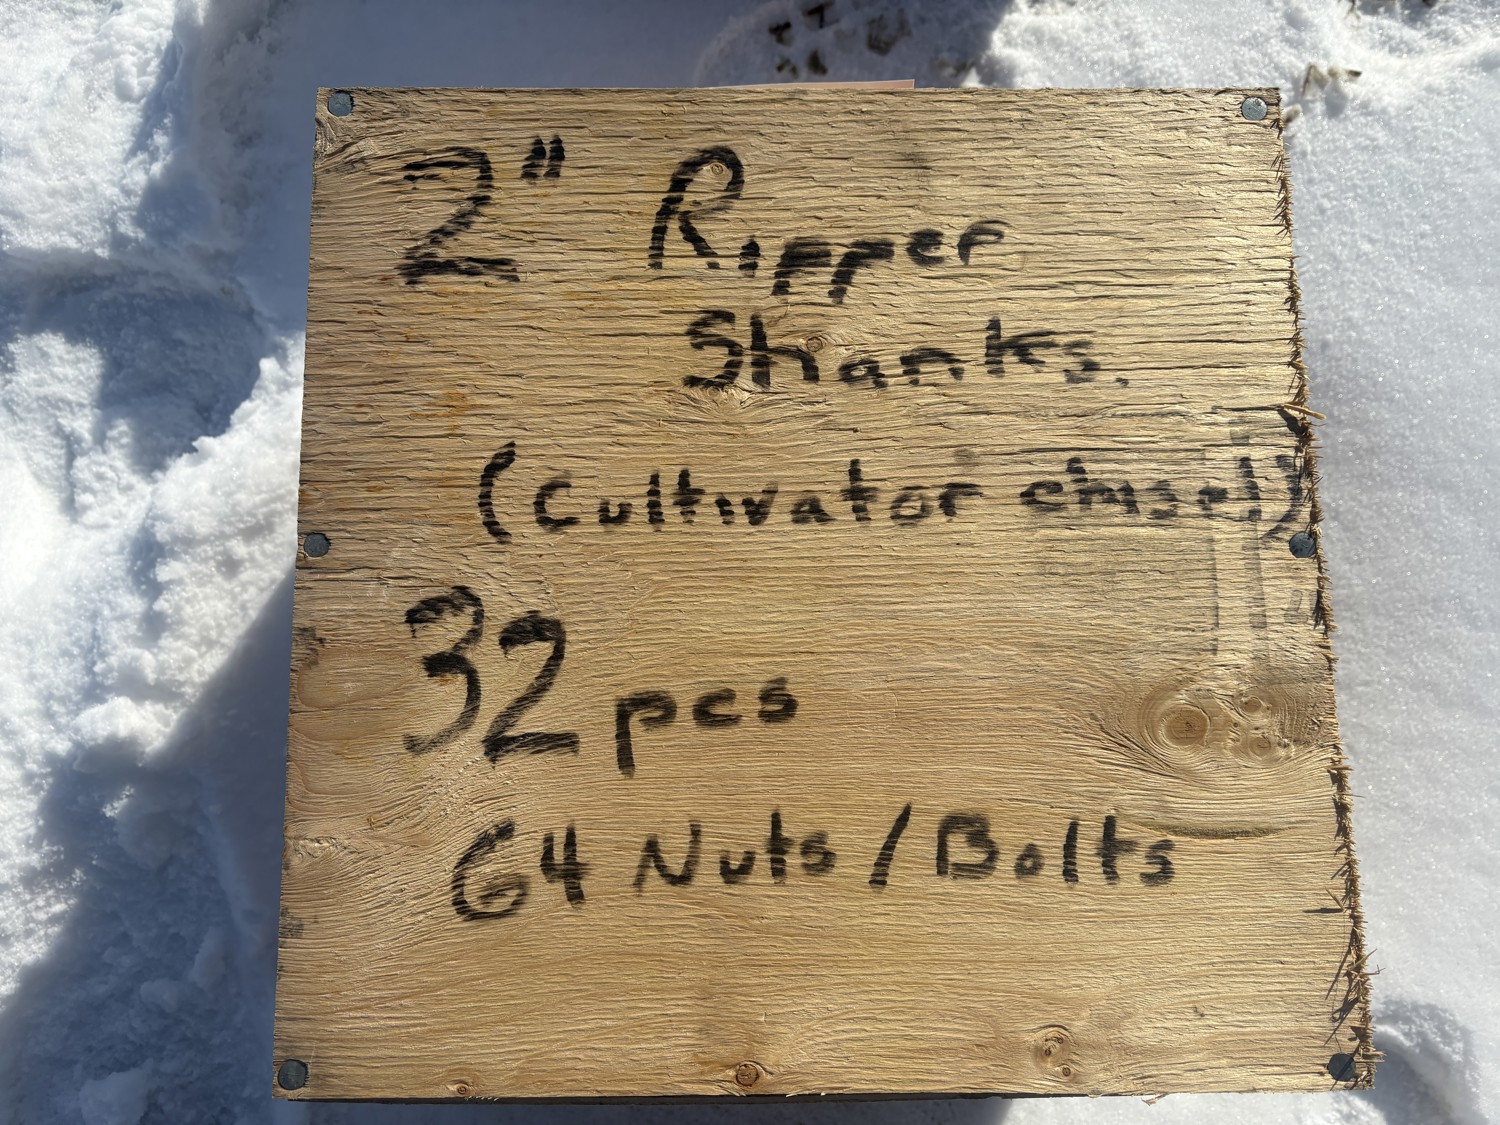 2" Ripper
Shanks.
(Cultivator chisel)
32 pcs
64 Nuts/Bolts